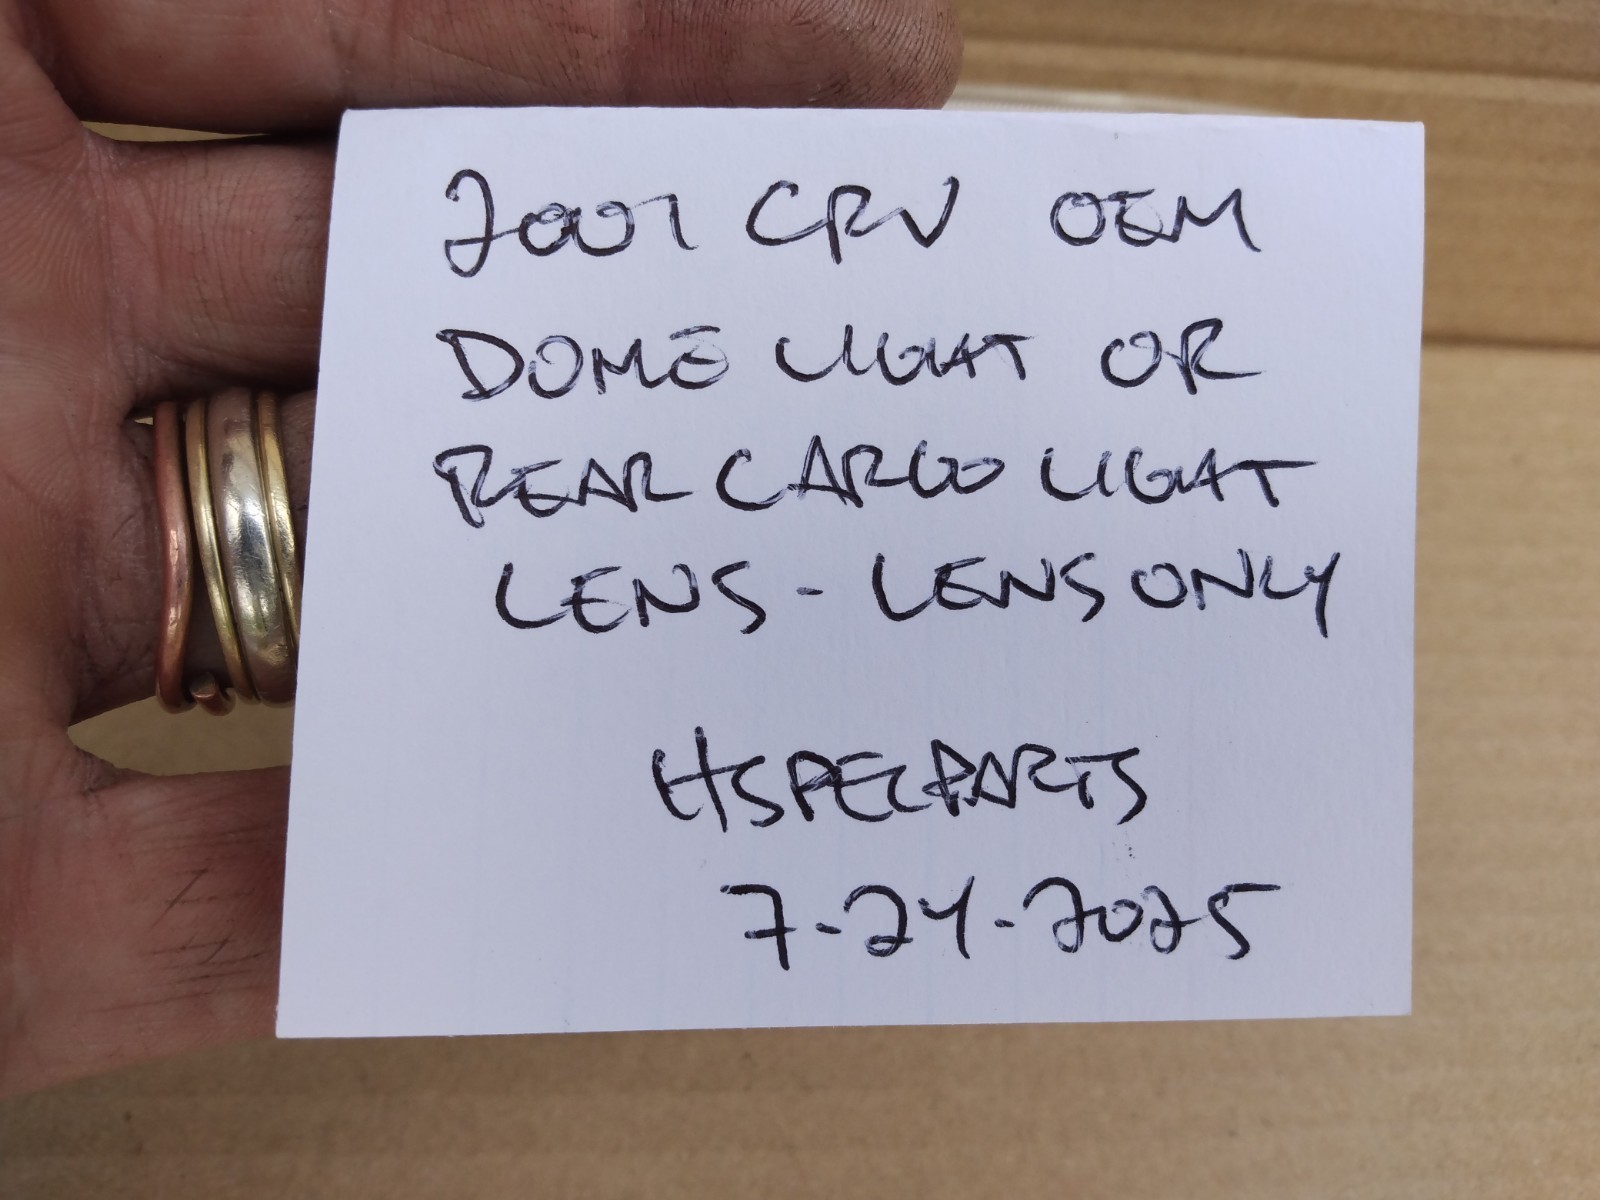 2001 CRV OEM
DOME LIGHT OR
REAR CARGO LIGHT
LENS - LENS ONLY
HSPECPARTS
7-24-2025